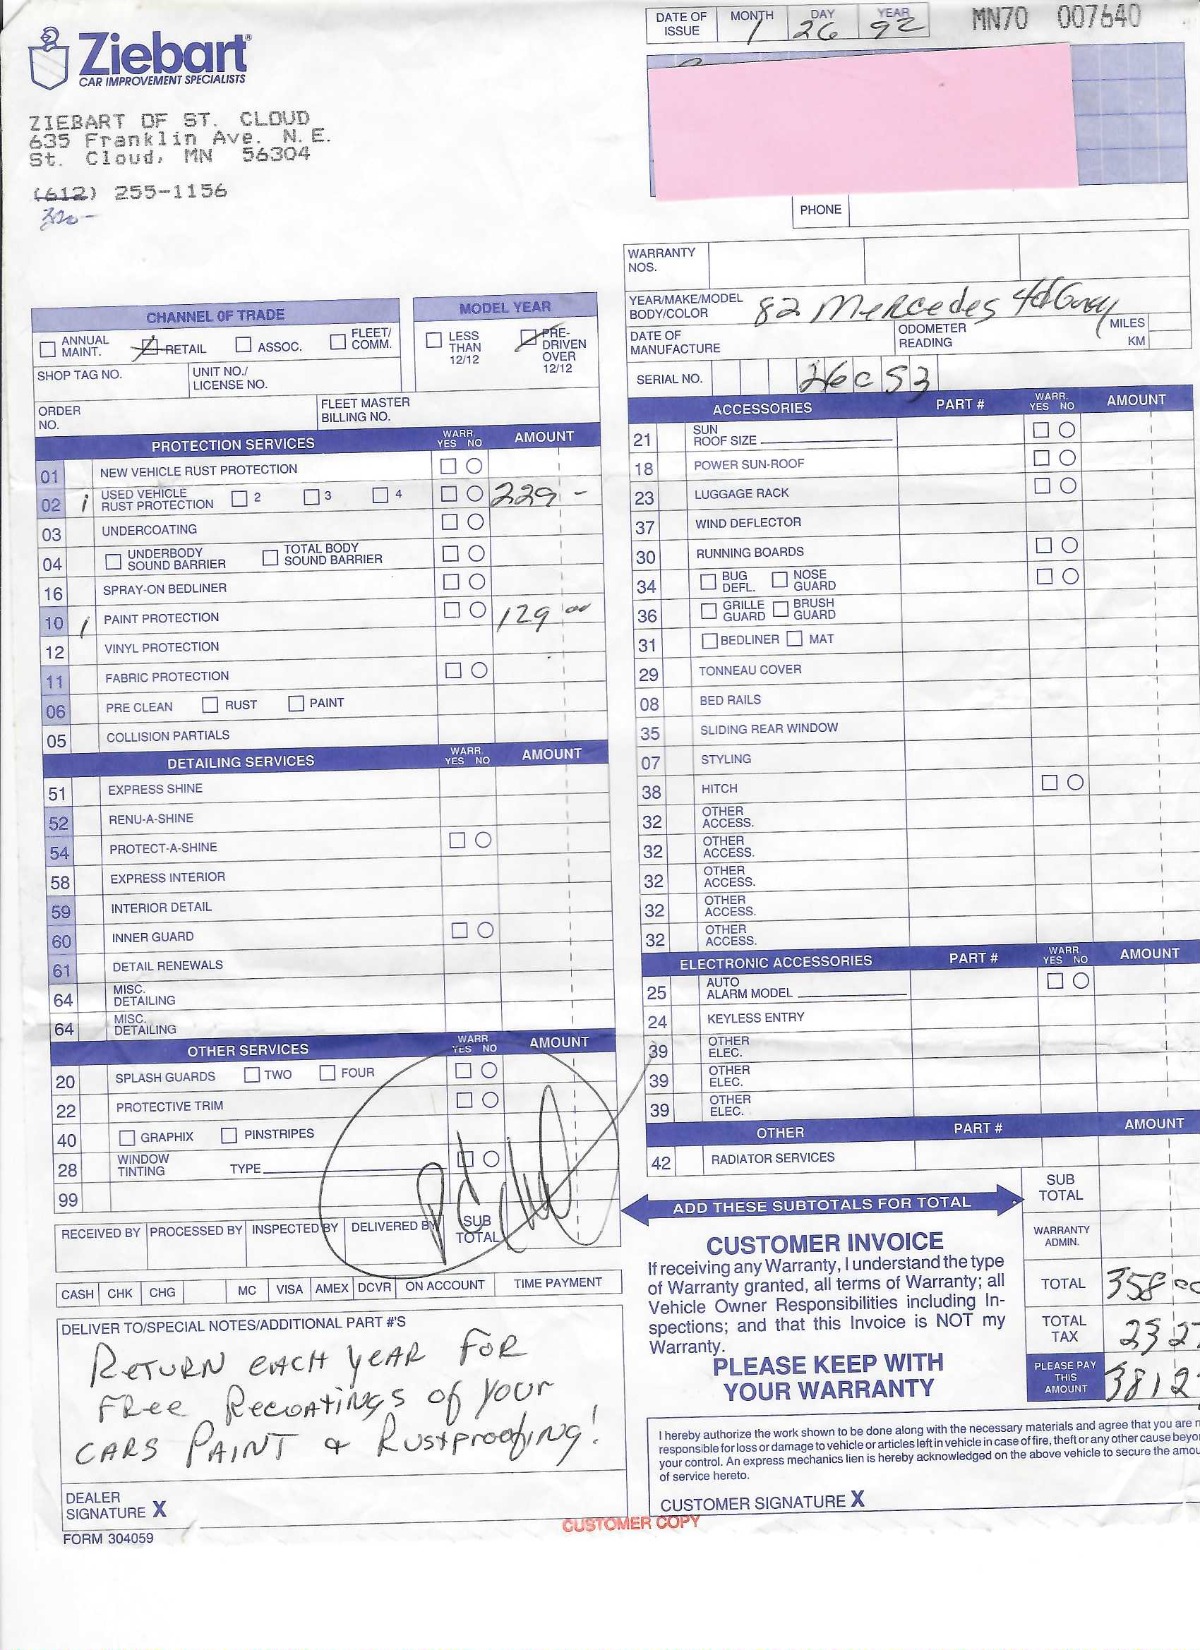 Ziebart®
CAR IMPROVEMENT SPECIALISTS
ZIEBART OF ST. CLOUD
635 Franklin Ave. N.E.
St. Cloud, MN 56304
(612) 255-1156
320-
DATE OF ISSUE MONTH 1 DAY 26 YEAR 92
MN70 007640
PHONE
WARRANTY NOS.
YEAR/MAKE/MODEL BODY/COLOR 82 Mercedes 4d Grey
DATE OF MANUFACTURE ODOMETER READING MILES KM
SERIAL NO. 26C53
CHANNEL OF TRADE
ANNUAL MAINT. RETAIL ASSOC. FLEET/COMM.
SHOP TAG NO. UNIT NO./LICENSE NO.
MODEL YEAR
LESS THAN 12/12 PRE-DRIVEN OVER 12/12
ORDER NO. FLEET MASTER BILLING NO.
PROTECTION SERVICES WARR. YES NO AMOUNT
01 NEW VEHICLE RUST PROTECTION
02 1 USED VEHICLE RUST PROTECTION 2 3 4 229 -
03 UNDERCOATING
04 UNDERBODY SOUND BARRIER TOTAL BODY SOUND BARRIER
16 SPRAY-ON BEDLINER
10 1 PAINT PROTECTION 129 00
12 VINYL PROTECTION
11 FABRIC PROTECTION
06 PRE CLEAN RUST PAINT
05 COLLISION PARTIALS
DETAILING SERVICES WARR. YES NO AMOUNT
51 EXPRESS SHINE
52 RENU-A-SHINE
54 PROTECT-A-SHINE
58 EXPRESS INTERIOR
59 INTERIOR DETAIL
60 INNER GUARD
61 DETAIL RENEWALS
64 MISC. DETAILING
64 MISC. DETAILING
OTHER SERVICES WARR YES NO AMOUNT
20 SPLASH GUARDS TWO FOUR
22 PROTECTIVE TRIM
40 GRAPHIX PINSTRIPES
28 WINDOW TINTING TYPE
99
RECEIVED BY PROCESSED BY INSPECTED BY DELIVERED BY SUB TOTAL
CASH CHK CHG MC VISA AMEX DCVR ON ACCOUNT TIME PAYMENT
DELIVER TO/SPECIAL NOTES/ADDITIONAL PART #'S
RETURN EACH YEAR FOR
FREE Recoatings of your
CARS PAINT & Rustproofing!
DEALER SIGNATURE X
FORM 304059
ACCESSORIES PART # WARR. YES NO AMOUNT
21 SUN ROOF SIZE
18 POWER SUN-ROOF
23 LUGGAGE RACK
37 WIND DEFLECTOR
30 RUNNING BOARDS
34 BUG DEFL. NOSE GUARD
36 GRILLE GUARD BRUSH GUARD
31 BEDLINER MAT
29 TONNEAU COVER
08 BED RAILS
35 SLIDING REAR WINDOW
07 STYLING
38 HITCH
32 OTHER ACCESS.
32 OTHER ACCESS.
32 OTHER ACCESS.
32 OTHER ACCESS.
32 OTHER ACCESS.
ELECTRONIC ACCESSORIES PART # WARR YES NO AMOUNT
25 AUTO ALARM MODEL
24 KEYLESS ENTRY
39 OTHER ELEC.
39 OTHER ELEC.
39 OTHER ELEC.
OTHER PART # AMOUNT
42 RADIATOR SERVICES
ADD THESE SUBTOTALS FOR TOTAL
SUB TOTAL
WARRANTY ADMIN.
TOTAL 358 00
TOTAL TAX 23 27
PLEASE PAY THIS AMOUNT 381 2
CUSTOMER INVOICE
If receiving any Warranty, I understand the type
of Warranty granted, all terms of Warranty; all
Vehicle Owner Responsibilities including In-
spections; and that this Invoice is NOT my
Warranty.
PLEASE KEEP WITH
YOUR WARRANTY
I hereby authorize the work shown to be done along with the necessary materials and agree that you are n
responsible for loss or damage to vehicle or articles left in vehicle in case of fire, theft or any other cause beyo
your control. An express mechanics lien is hereby acknowledged on the above vehicle to secure the amou
of service hereto.
CUSTOMER SIGNATURE X
CUSTOMER COPY